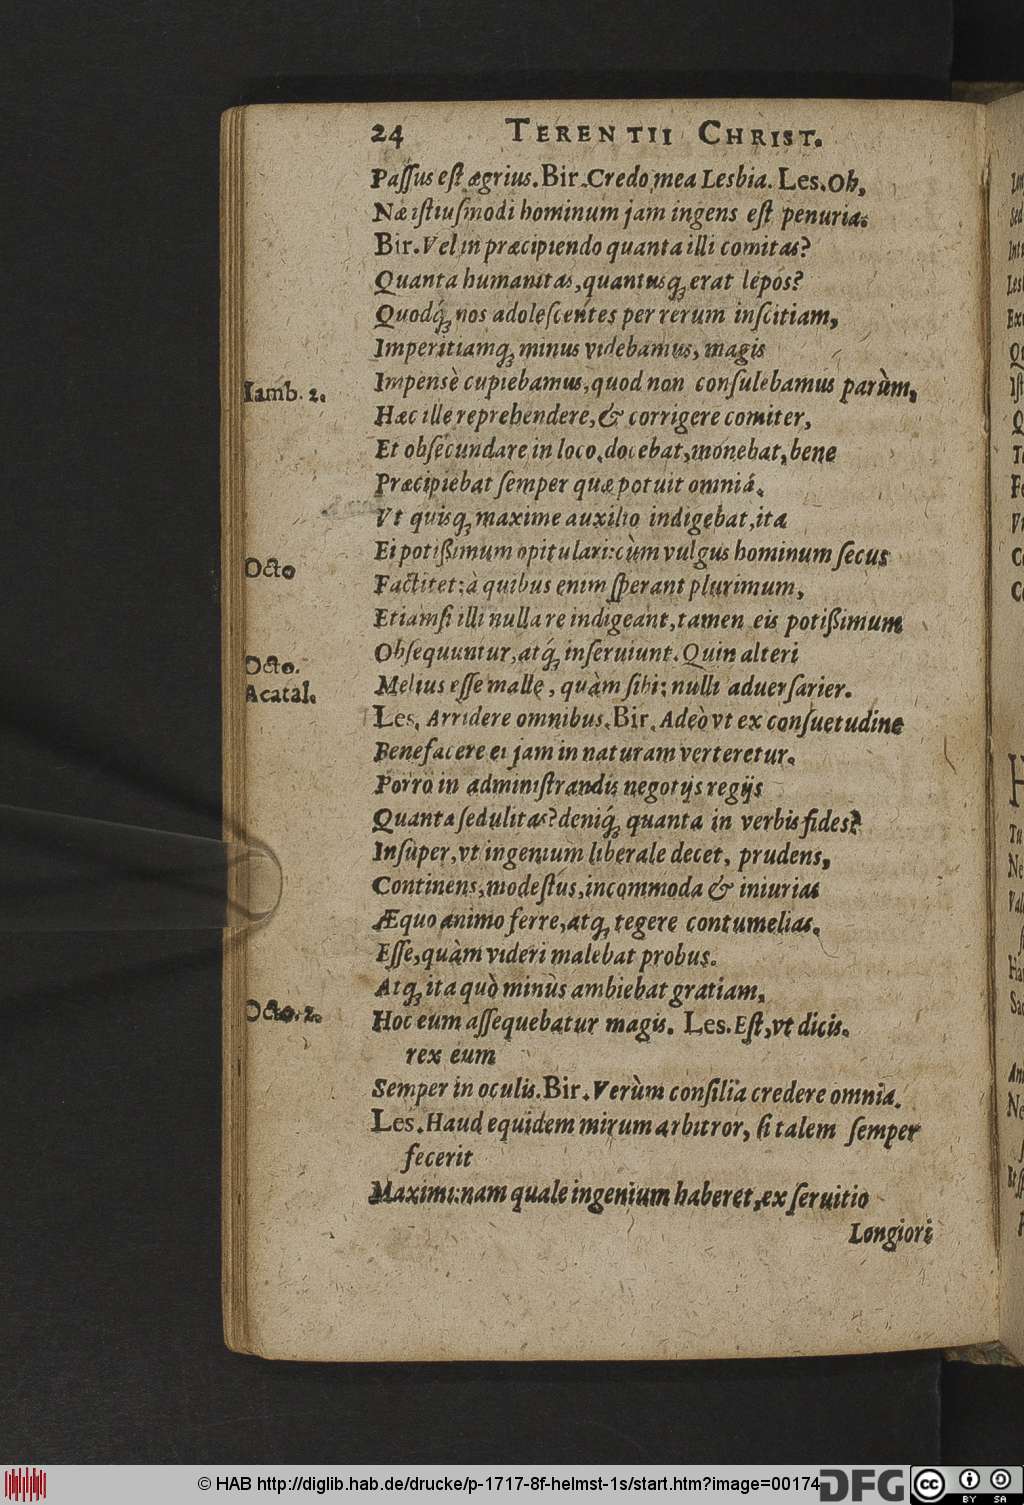 24 TERENTII CHRIST.
Paſſus eſt ægrius. Bir. Credo mea Lesbia. Les. Oh,
Næ iſtiuſmodi hominum jam ingens eſt penuria.
Bir. Vel in præcipiendo quanta illi comitas?
Quanta humanitas, quantusq; erat lepos?
Quodq́; nos adoleſcentes per rerum inſcitiam,
Imperitiamq; minus videbamus, magis
Iamb. 2.
Impensè cupiebamus, quod non conſulebamus parùm,
Hæc ille reprehendere, & corrigere comiter,
Et obſecundare in loco, docebat, monebat, bene
Præcipiebat ſemper quæ potuit omniá.
Vt quisq; maxime auxilio indigebat, ita
Ei potißimum opitulari: cùm vulgus hominum ſecus
Octo
Factitet: à quibus enim ſperant plurimum,
Etiamſi illi nulla re indigeant, tamen eis potißimum
Obſequuntur, atq́; inſeruiunt. Quin alteri
Octo.
Acatal.
Melius eſſe malle, quàm ſibi: nulli aduerſarier.
Les. Arridere omnibus. Bir. Adeò vt ex conſuetudine
Benefacere ei jam in naturam verteretur.
Porrò in adminiſtrandis negotijs regijs
Quanta ſedulitas? deniq́; quanta in verbis fides?
Inſuper, vt ingenium liberale decet, prudens,
Continens, modeſtus, incommoda & iniurias
Æquo animo ferre, atq; tegere contumelias.
Eſſe, quàm videri malebat probus.
Atq; ita quò minùs ambiebat gratiam,
Octo. 2.
Hoc eum aſſequebatur magis. Les. Eſt, vt dicis.
rex eum
Semper in oculis. Bir. Verùm conſilia credere omnia.
Les. Haud equidem mirum arbitror, ſi talem ſemper
fecerit
Maximi: nam quale ingenium haberet, ex ſeruitio
Longiori
© HAB http://diglib.hab.de/drucke/p-1717-8f-helmst-1s/start.htm?image=00174
DFG
CC BY SA